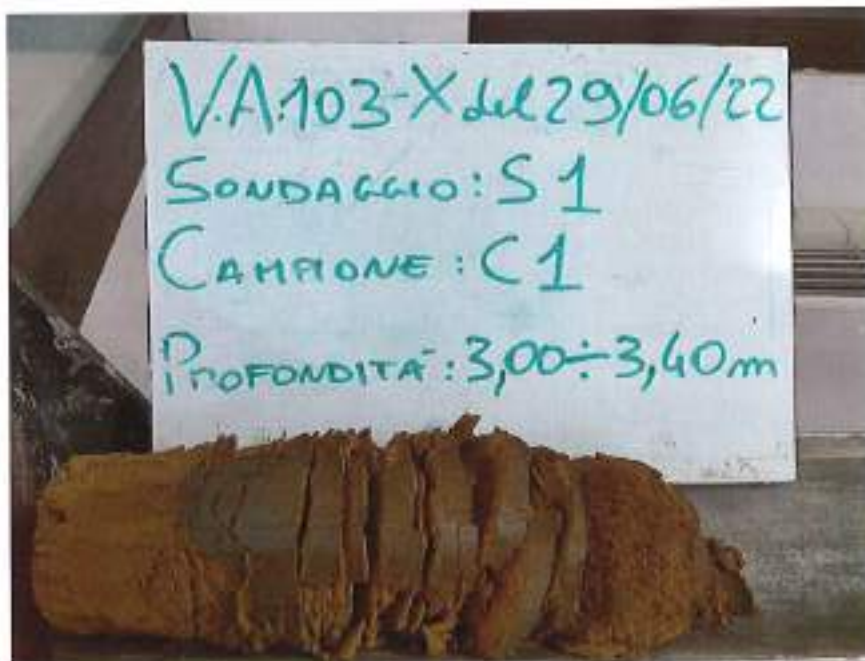 V.A.103-X del 29/06/22
SONDAGGIO: S1
CAMPIONE: C1
PROFONDITÀ: 3,00÷3,40m